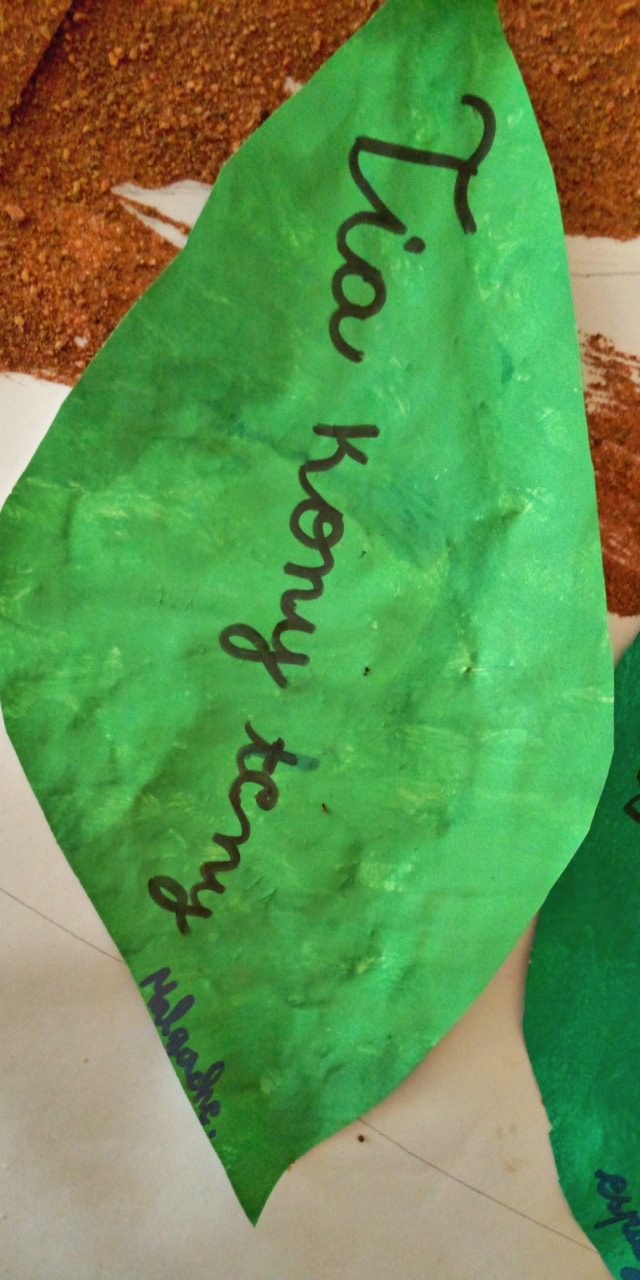 Tia kony teny
Malgache.